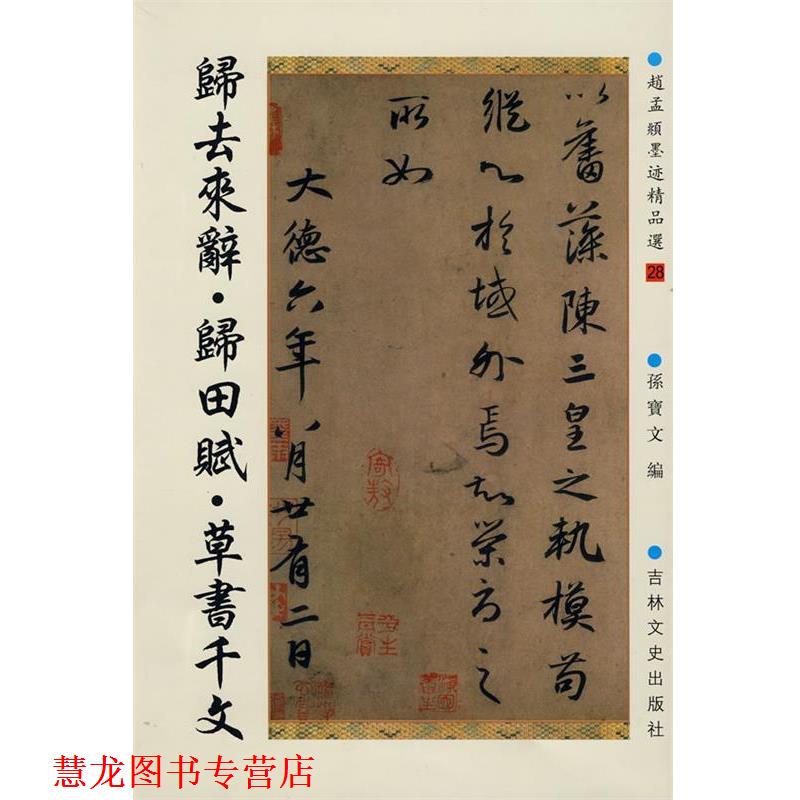 歸去來辭·歸田賦·草書千文
以奮藻陳三皇之執模苟
縱心於域外焉知榮辱之
所如
大德六年八月廿有二日
趙孟頫墨迹精品選 28
孫寶文 編
吉林文史出版社
慧龙图书专营店